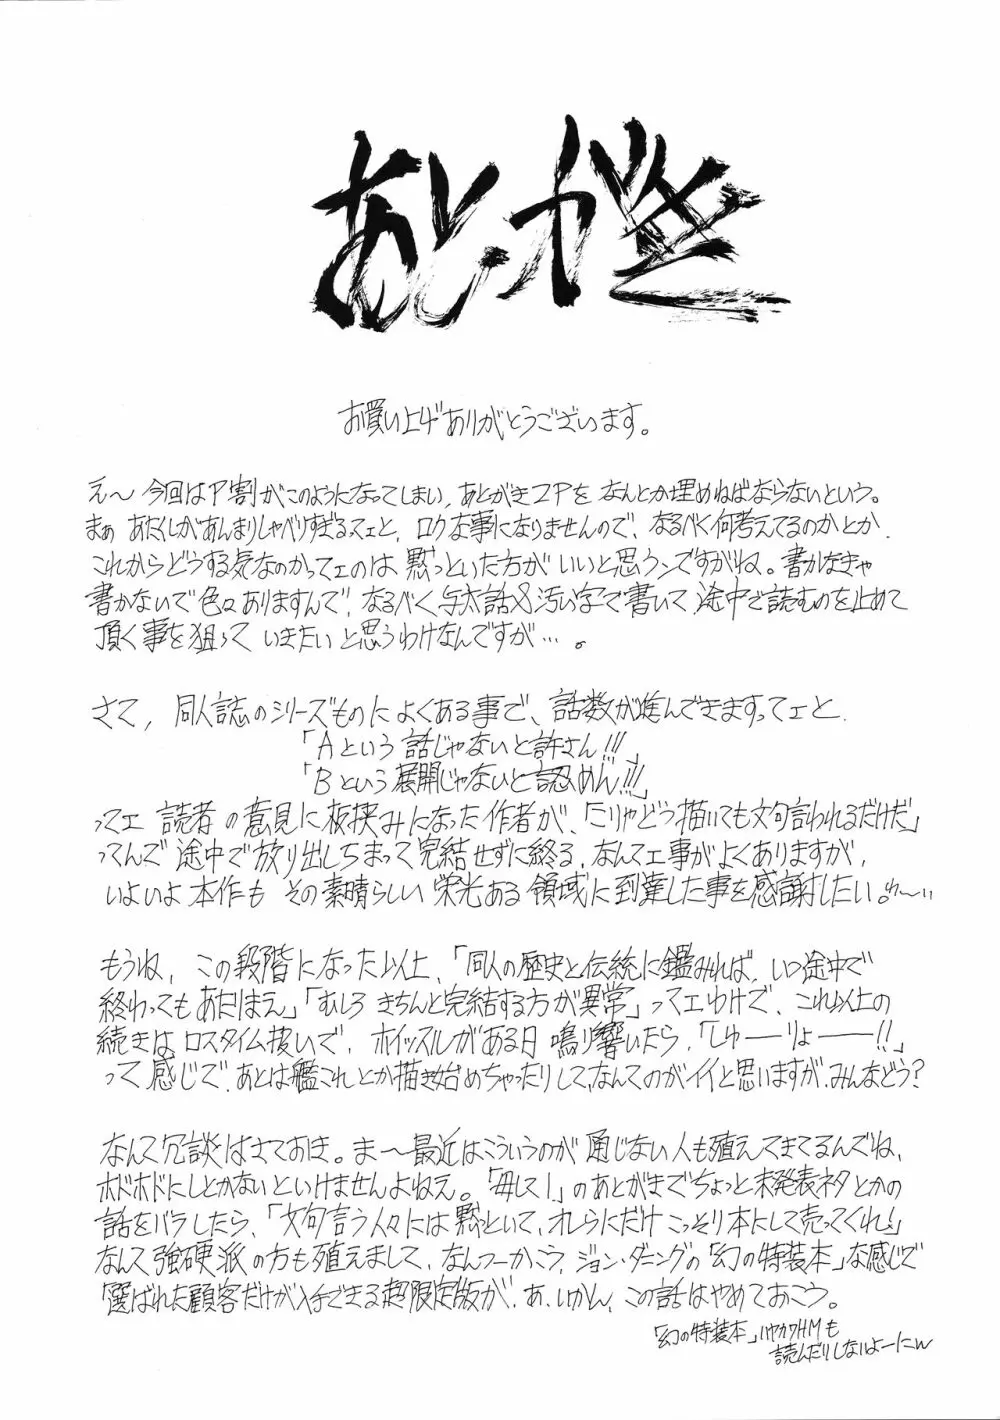 あとがき
お買い上げありがとうございます。
え〜今回はP割がこのようになってしまい、あとがき2Pをなんとか埋めねばならないという。
まぁあたくしがあんまりしゃべりすぎるってェと、ロクな事になりませんので、なるべく何考えてるのかとか、
これからどうする気なのかってェのは黙っといた方がいいと思うンですがね。書かなきゃ
書かないで色々ありますんで、なるべく与太話&汚い字で書いて途中で読むのを止めて
頂く事を狙っていきたいと思うわけなんですが…。
さて、同人誌のシリーズものによくある事で、話数が進んできますってェと、
「Aという話じゃないと許さん!!!」
「Bという展開じゃないと認めん!!!」
ってェ読者の意見に板挟みになった作者が、「こりゃどう描いても文句言われるだけだ」
ってんで途中で放り出しちまって完結せずに終る、なんてェ事がよくありますが、
いよいよ本作もその素晴らしい栄光ある領域に到達した事を感謝したい。
もうね、この段階になった以上、「同人の歴史と伝統に鑑みれば、いつ途中で
終わってもあたぼまえ」「むしろきちんと完結する方が異常」ってェわけで、これ以上の
続きはロスタイム扱いで、ホイッスルがある日鳴り響いたら、「しゅーーりょーーー!!」
って感じで、あとは艦これとか描き始めちゃったりして、なんてのがイイと思いますが、みんなどう?
なんて冗談はさておき。ま〜最近はこういうのが通じない人も殖えてきてるんでね、
ホドホドにしとかないといけませんよねえ。「毎して!」のあとがきでちょっと未発表ネタとかの
話をバラしたら、「文句言う人々には黙っといて、オレらにだけこっそり本にして売ってくれ!」
なんて強硬派の方も殖えまして、なんつーかこう、ジョン・ダニングの「幻の特装本」な感じで
「選ばれた顧客だけが入手できる超限定版が、あ、いかん、この話はやめておこう。
「幻の特装本」ハヤカワHMも
読んだりしないよーにw